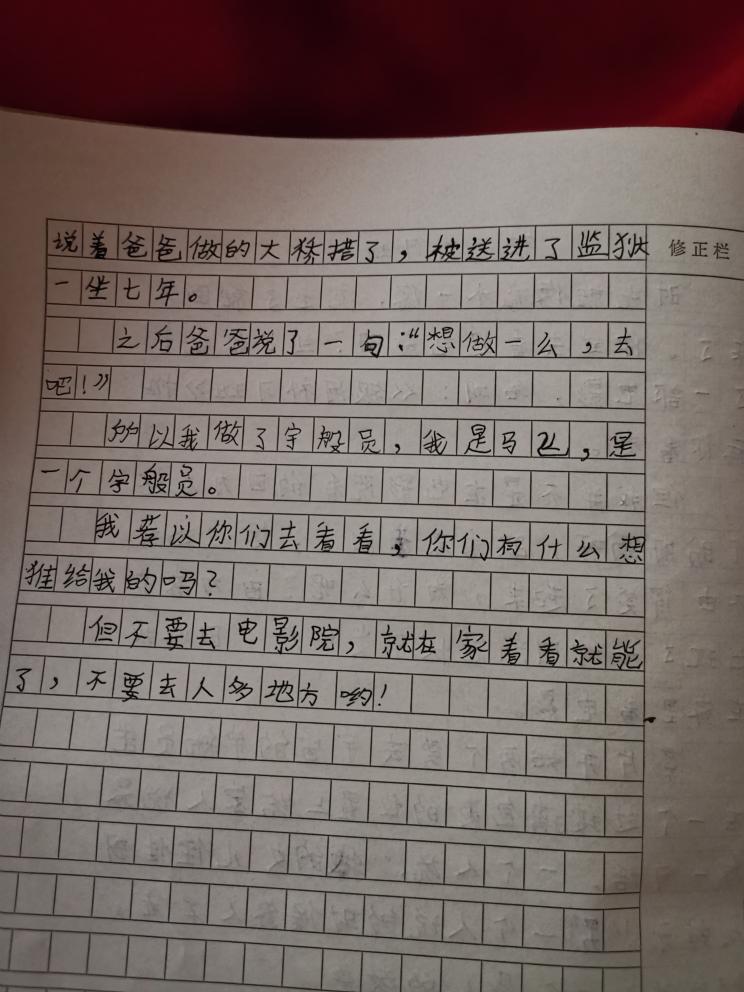 说着爸爸做的大桥搭了，被送进了监狱
修正栏
一坐七年。
之后爸爸说了一句：“想做一么，去
吧！”
所以我做了宇般员，我是马飞，是
一个宇般员。
我荐以你们去看看，你们有什么想
推给我的吗？
但不要去电影院，就在家看看就能
了，不要去人多地方哟！